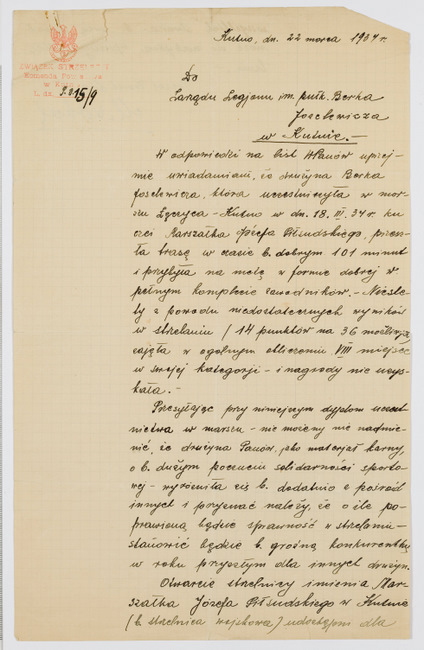 Kutno, dn. 22 marca 1934 r.
ZWIĄZEK STRZELECKI
Komenda Powiatowa
w Kutnie
L. dz. 315/9
Do
Zarządu Legjonu im. pułk. Berka
Joselewicza
w Kutnie. –
W odpowiedzi na list WPanów uprzej-
mie uwiadamiam, że drużyna Berka
Joselewicza, która uczestniczyła w mar-
szu Łęczyca - Kutno w dn. 18. III. 34 r. ku
czci Marszałka Józefa Piłsudskiego, przesz-
ła trasę w czasie b. dobrym 101 minut
i przybyła na metę w formie dobrej w
pełnym komplecie zawodników. – Nieste-
ty z powodu niedostatecznych wyników
w strzelaniu / 14 punktów na 36 możliwych
zajęła w ogólnym obliczeniu VIII miejsce
w swojej kategorji - i nagrody nie uzys-
kała. –
Przesyłając przy niniejszym dyplom uczest-
nictwa w marszu - nie możemy nie nadmie-
nić, że drużyna Panów, jako materjał karny,
o b. dużym poczuciu solidarności sporto-
wej - wyróżniła się b. dodatnio z pośród
innych i przyznać należy, że o ile po-
prawioną będzie sprawność w strzelaniu -
stanowić będzie b. groźną konkurentkę
w roku przyszłym dla innych drużyn.
Otwarcie strzelnicy imienia Mar-
szałka Józefa Piłsudskiego w Kutnie
(b. strzelnica wojskowa) udostępni dla